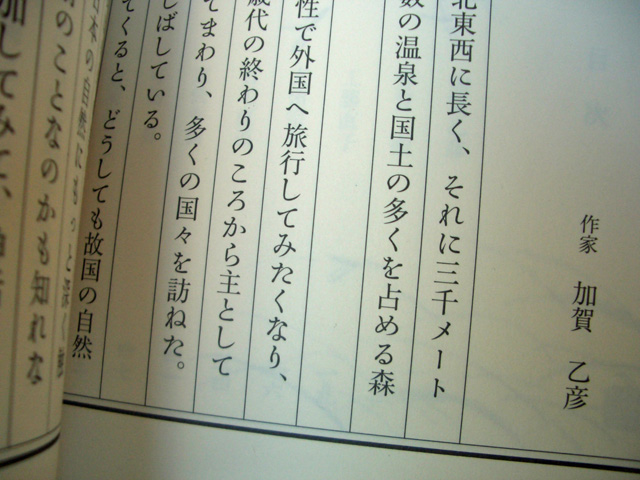 作家 加賀 乙彦
北東西に長く、それに三千メート
数の温泉と国土の多くを占める森
性で外国へ旅行してみたくなり、
歳代の終わりのころから主として
てまわり、多くの国々を訪ねた。
しばしている。
てくると、どうしても故国の自然
日本の自然にもっと深く
のことなのかも知れな
加してみて、